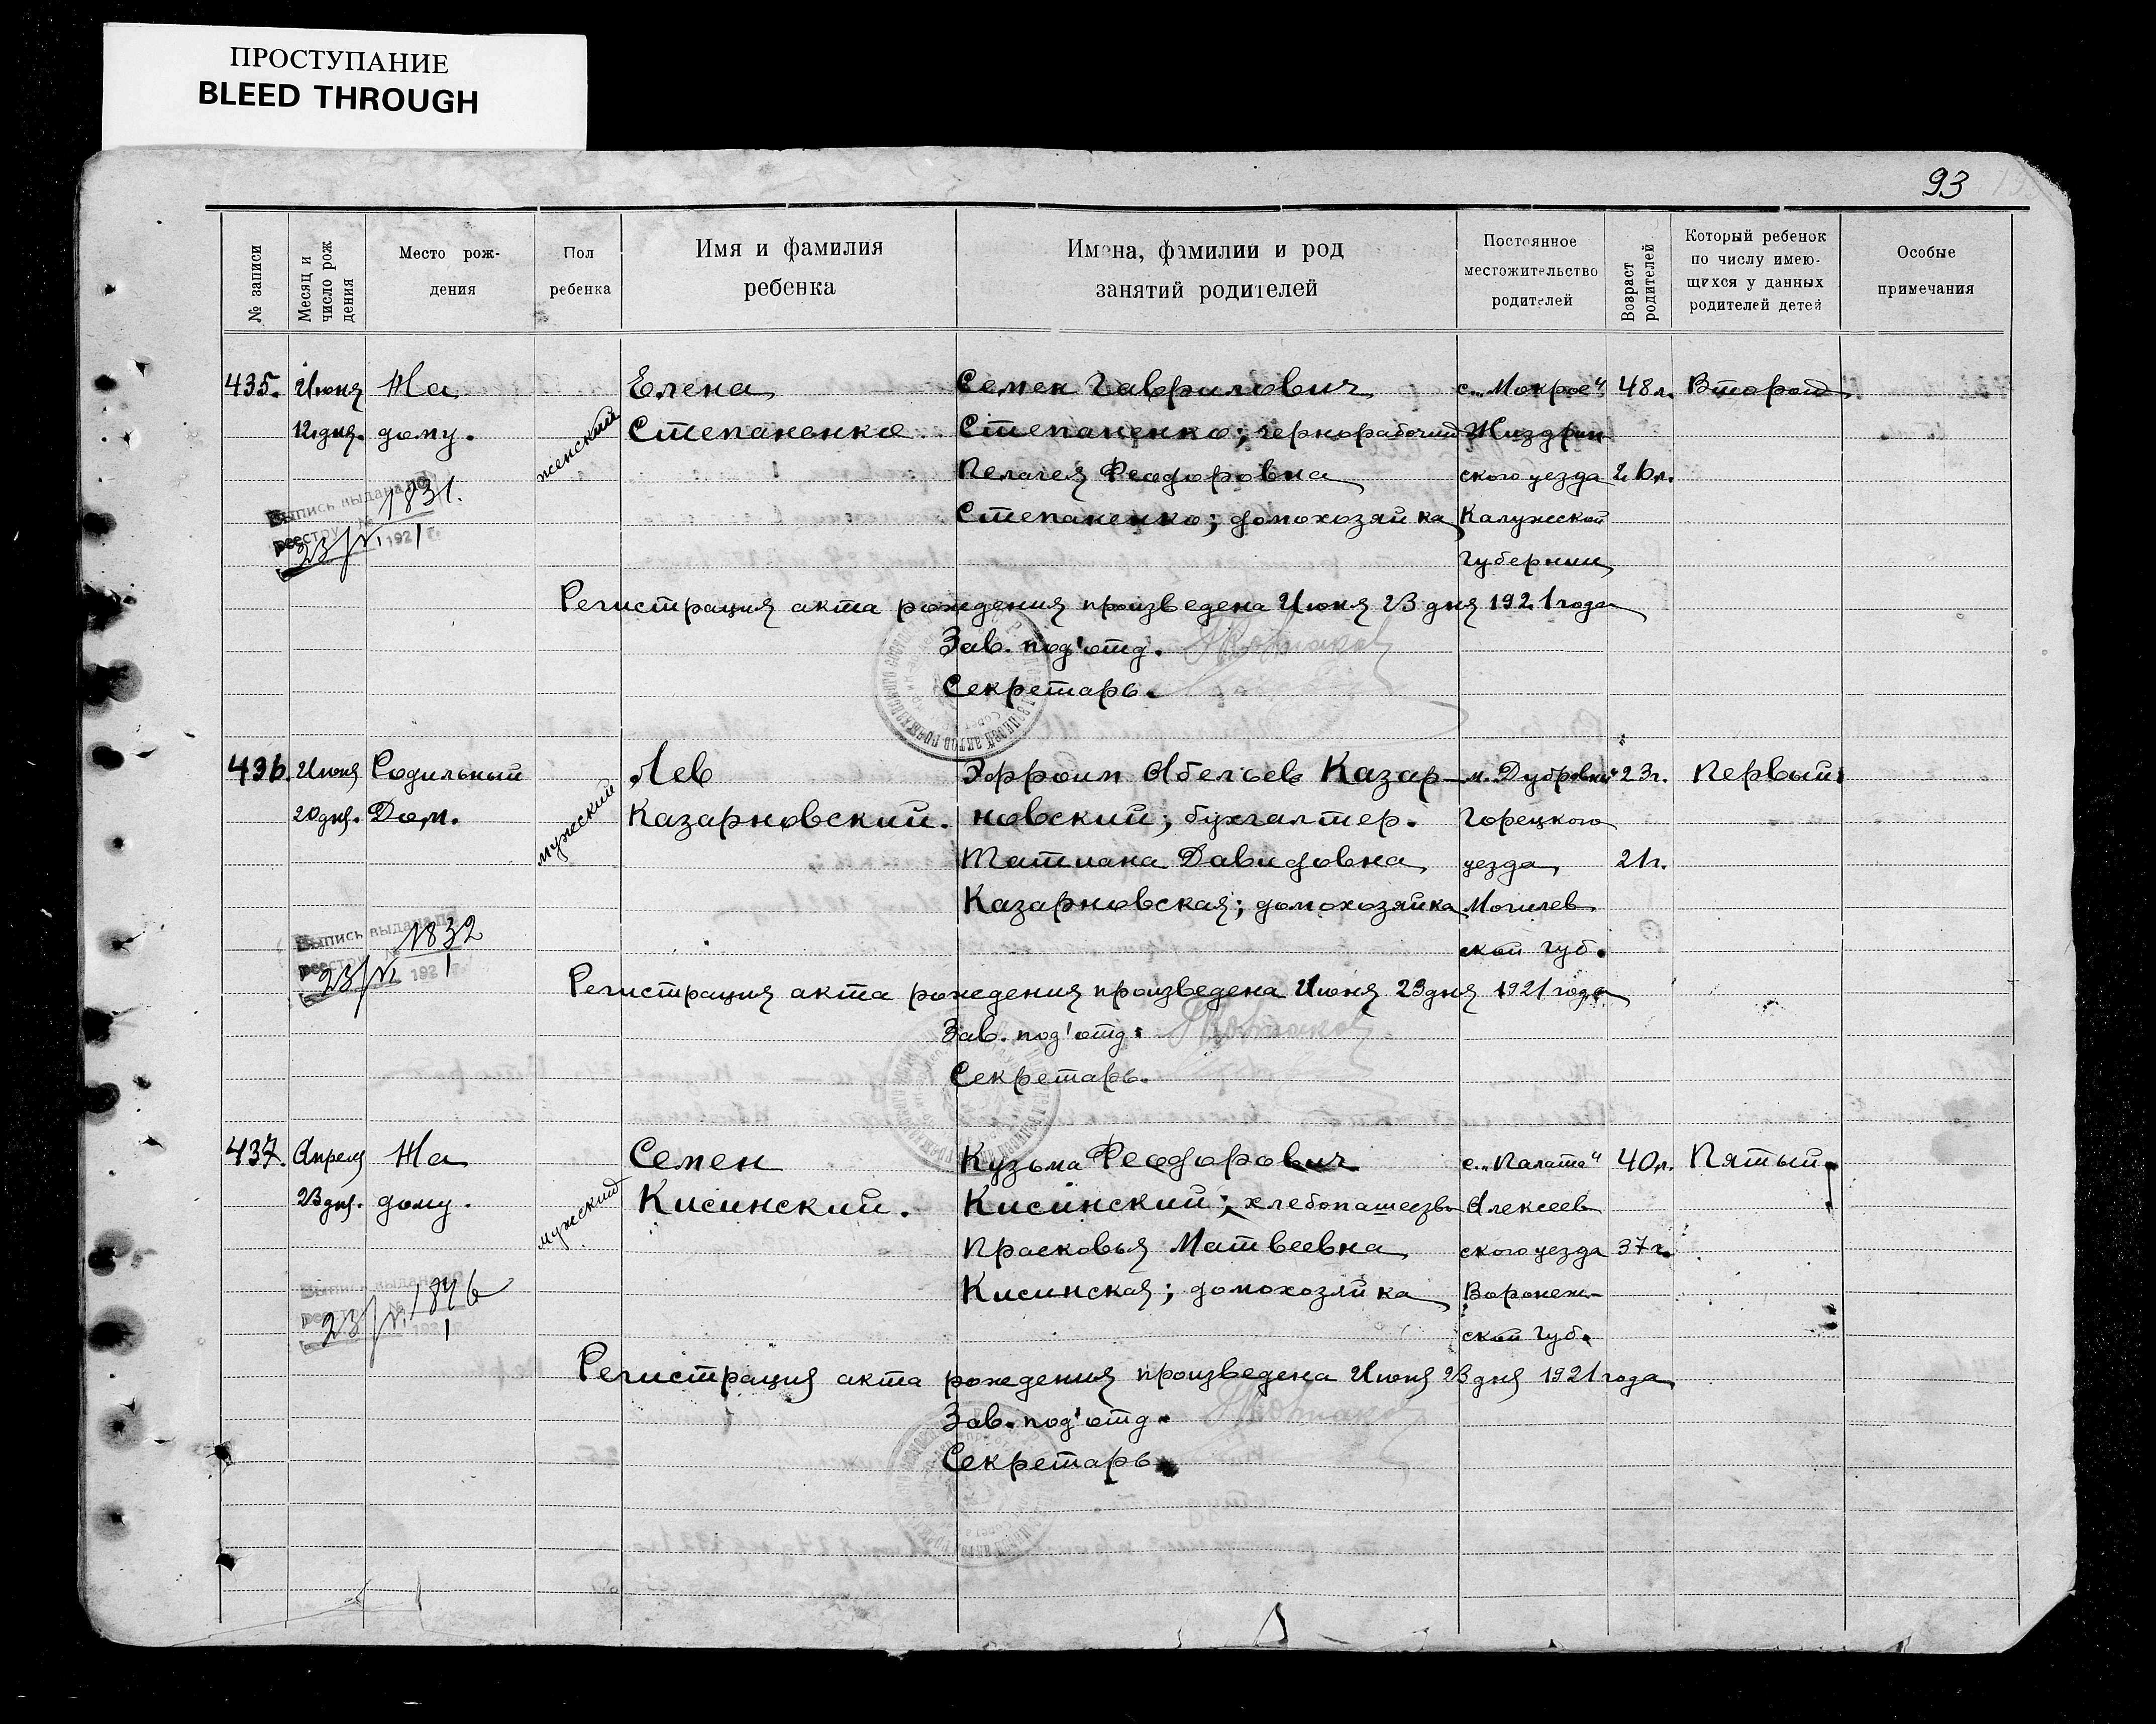 ПРОСТУПАНИЕ
BLEED THROUGH
93
№ записи
Месяц и число рож дения
Место рож-
дения
Пол
ребенка
Имя и фамилия
ребенка
Имена, фамилии и род
занятий родителей
Постоянное
местожительство
родителей
Возраст родителей
Который ребенок
по числу имею-
щихся у данных
родителей детей
Особые
примечания
435. Июня На Елена Семен Гаврилович с. „Мокрое“ 48 л. Второй
12 дня. дому. женский Степаненко. Степаненко; чернорабочий Жиздрин
Пелагея Феодоровна ского уезда 26 л.
Степаненко; домохозяйка Калужской
губернии
Выпись выдана по
реестру № 1831.
23/VI 1921 г.
Регистрация акта рождения произведена Июня 23 дня 1921 года
Зав. под'отд.
Секретарь.
436. Июня Родильный Лев Эфроим Абельев Казар- м. Дубровны 23 г. Первый.
20 дня. Дом. мужеский Казарновский. новский; бухгалтер. Горецкого
Татиана Давидовна уезда 21 г.
Казарновская; домохозяйка Могилев
ской губ.
Выпись выдана по
реестру № 1832
23/VI 1921 г.
Регистрация акта рождения произведена Июня 23 дня 1921 года
Зав. под'отд.
Секретарь.
437. Апреля На Семен Кузьма Феодорович с. „Палата“ 40 л. Пятый.
23 дня. дому. мужский Кисинский. Кисинский; хлебопашец Алексеев
Прасковья Матвеевна ского уезда 37 г.
Кисинская; домохозяйка Воронеж-
ской губ.
Выпись выдана по
реестру № 1846
23/VI 1921
Регистрация акта рождения произведена Июня 23 дня 1921 года
Зав. под'отд.
Секретарь